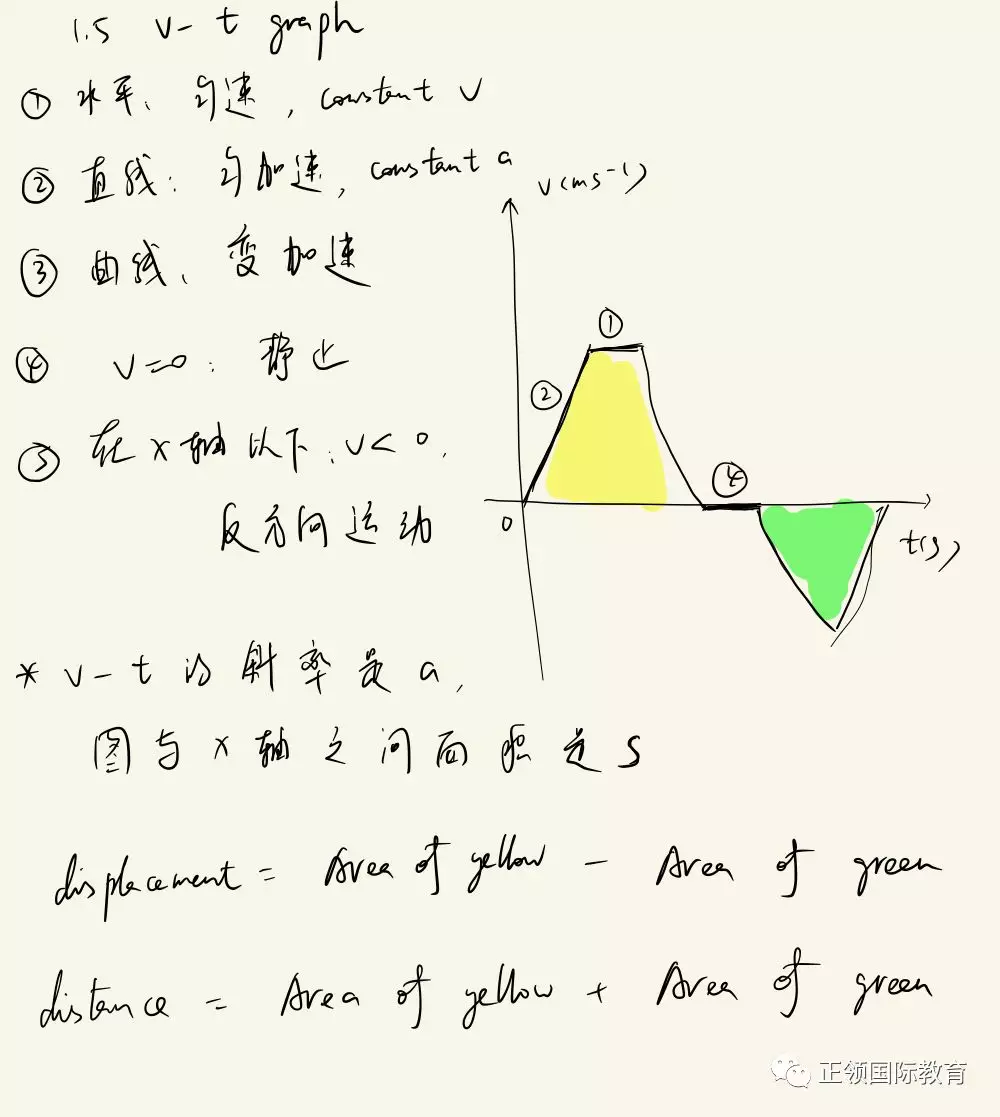 1.5 v-t graph
① 水平、匀速, constant v
② 直线: 匀加速, constant a
③ 曲线、变加速
④ v=0: 静止
⑤ 在x轴以下: v<0,
反方向运动
v(ms⁻¹)
①
②
④
0
t(s)
* v-t的斜率是a,
图与x轴之间面积是S
displacement = Area of yellow - Area of green
distance = Area of yellow + Area of green
正领国际教育